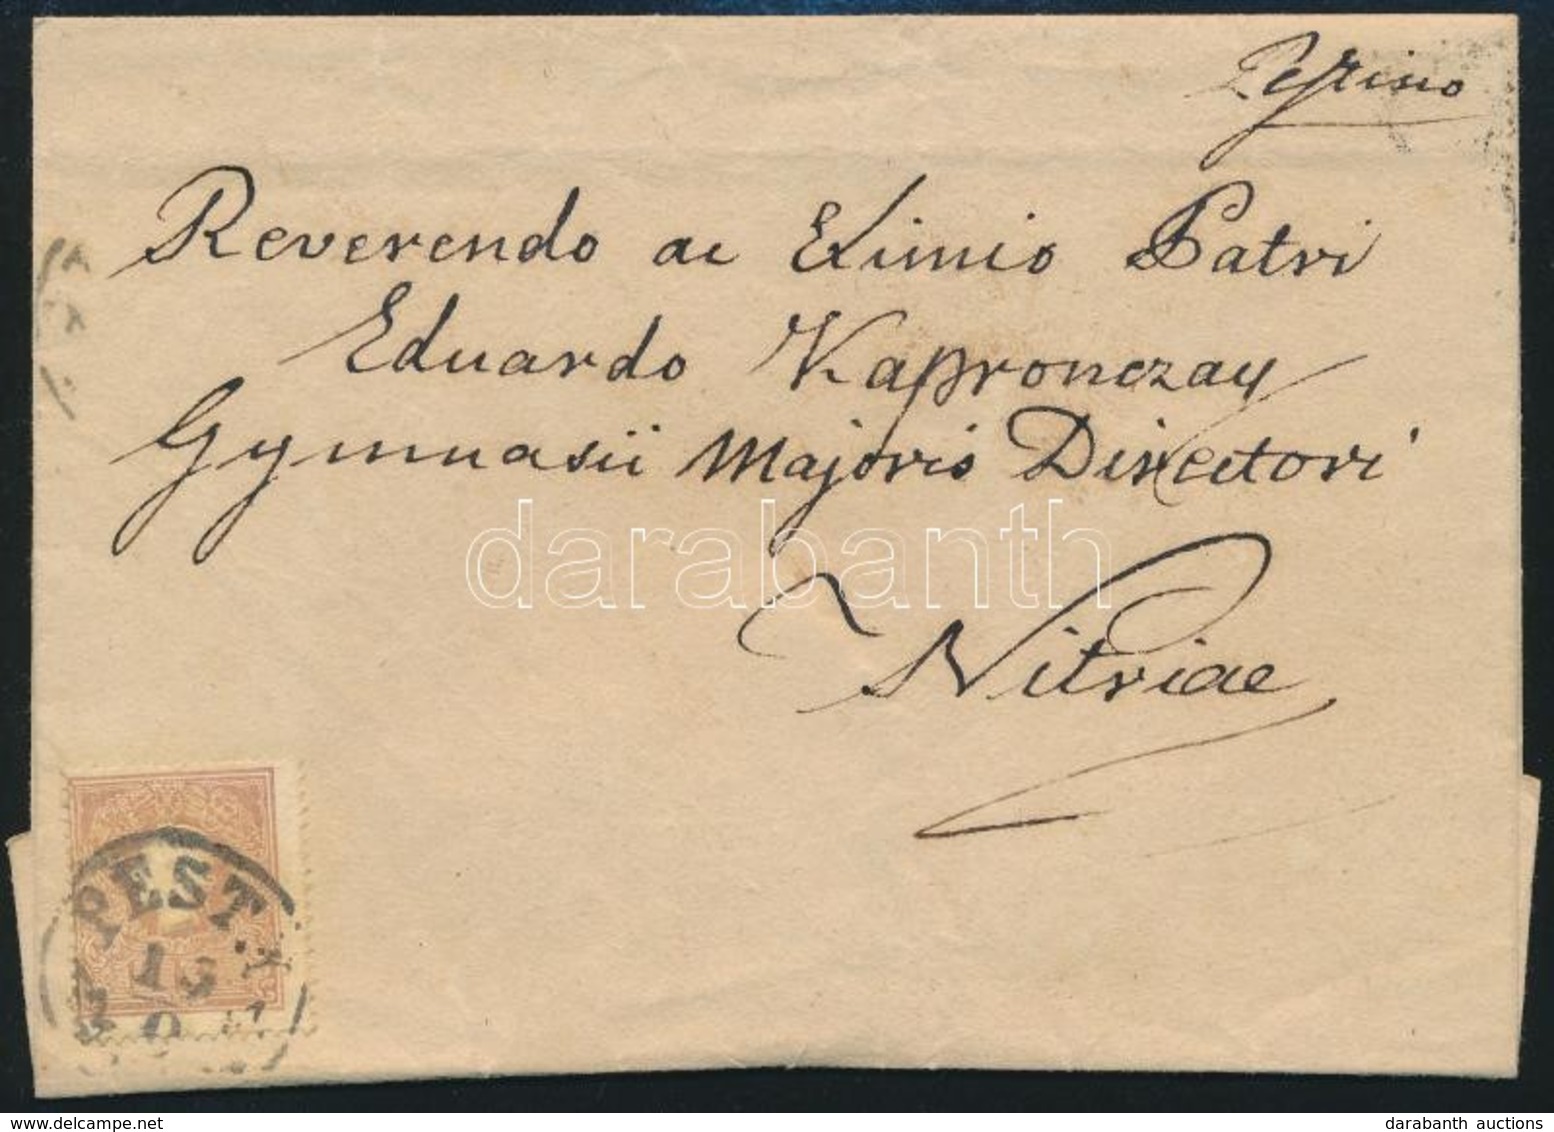 Pestino
Reverendo ac Eximio Patri
Eduardo Kapronczay
Gymnasii Majoris Directori
Nitriae
darabanth
PEST
15
9
delcampe.net
darabanth auctions